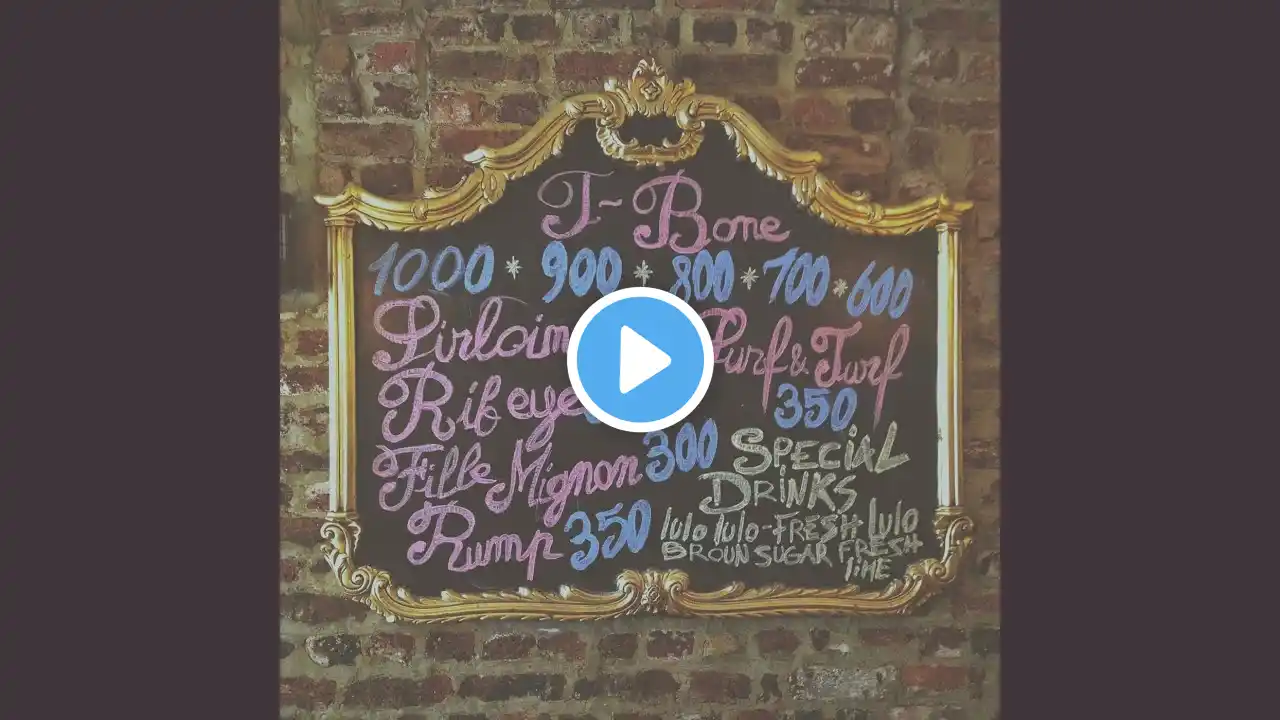 T-Bone
1000 * 900 * 800 * 700 * 600
Sirloin
Surf & Turf
Rib eye
350
Fille Mignon 300
Rump 350
SPECIAL
DRINKS
lulo lulo-FRESH lulo
BROUN SUGAR FRESH
liME